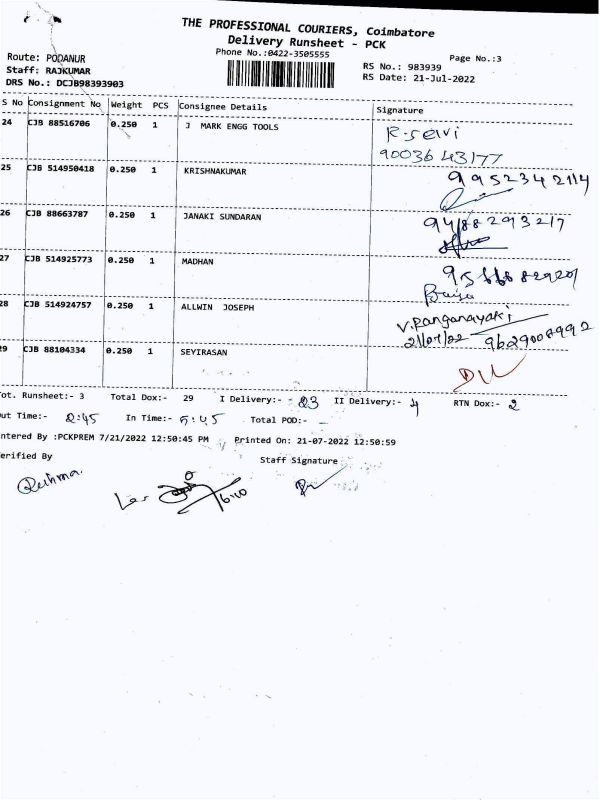 THE PROFESSIONAL COURIERS, Coimbatore
Delivery Runsheet - PCK
Phone No.:0422-3505555
Page No.:3
Route: PODANUR
RS No.: 983939
Staff: RAJKUMAR
RS Date: 21-Jul-2022
DRS No.: DCJB98393903
S No Consignment No Weight PCS Consignee Details Signature
24 CJB 88516706 0.250 1 J MARK ENGG TOOLS R-selvi
90036 43177
25 CJB 514950418 0.250 1 KRISHNAKUMAR 9952342114
26 CJB 88663787 0.250 1 JANAKI SUNDARAN 9488293217
27 CJB 514925773 0.250 1 MADHAN
28 CJB 514924757 0.250 1 ALLWIN JOSEPH V.Ranganayaki
21/07/22 9629008992
29 CJB 88104334 0.250 1 SEYIRASAN
Tot. Runsheet:- 3 Total Dox:- 29 I Delivery:- 23 II Delivery:- 4 RTN Dox:- 2
Out Time:- 2:45 In Time:- 5:45 Total POD:-
ntered By :PCKPREM 7/21/2022 12:50:45 PM Printed On: 21-07-2022 12:50:59
erified By Staff Signature
6:10